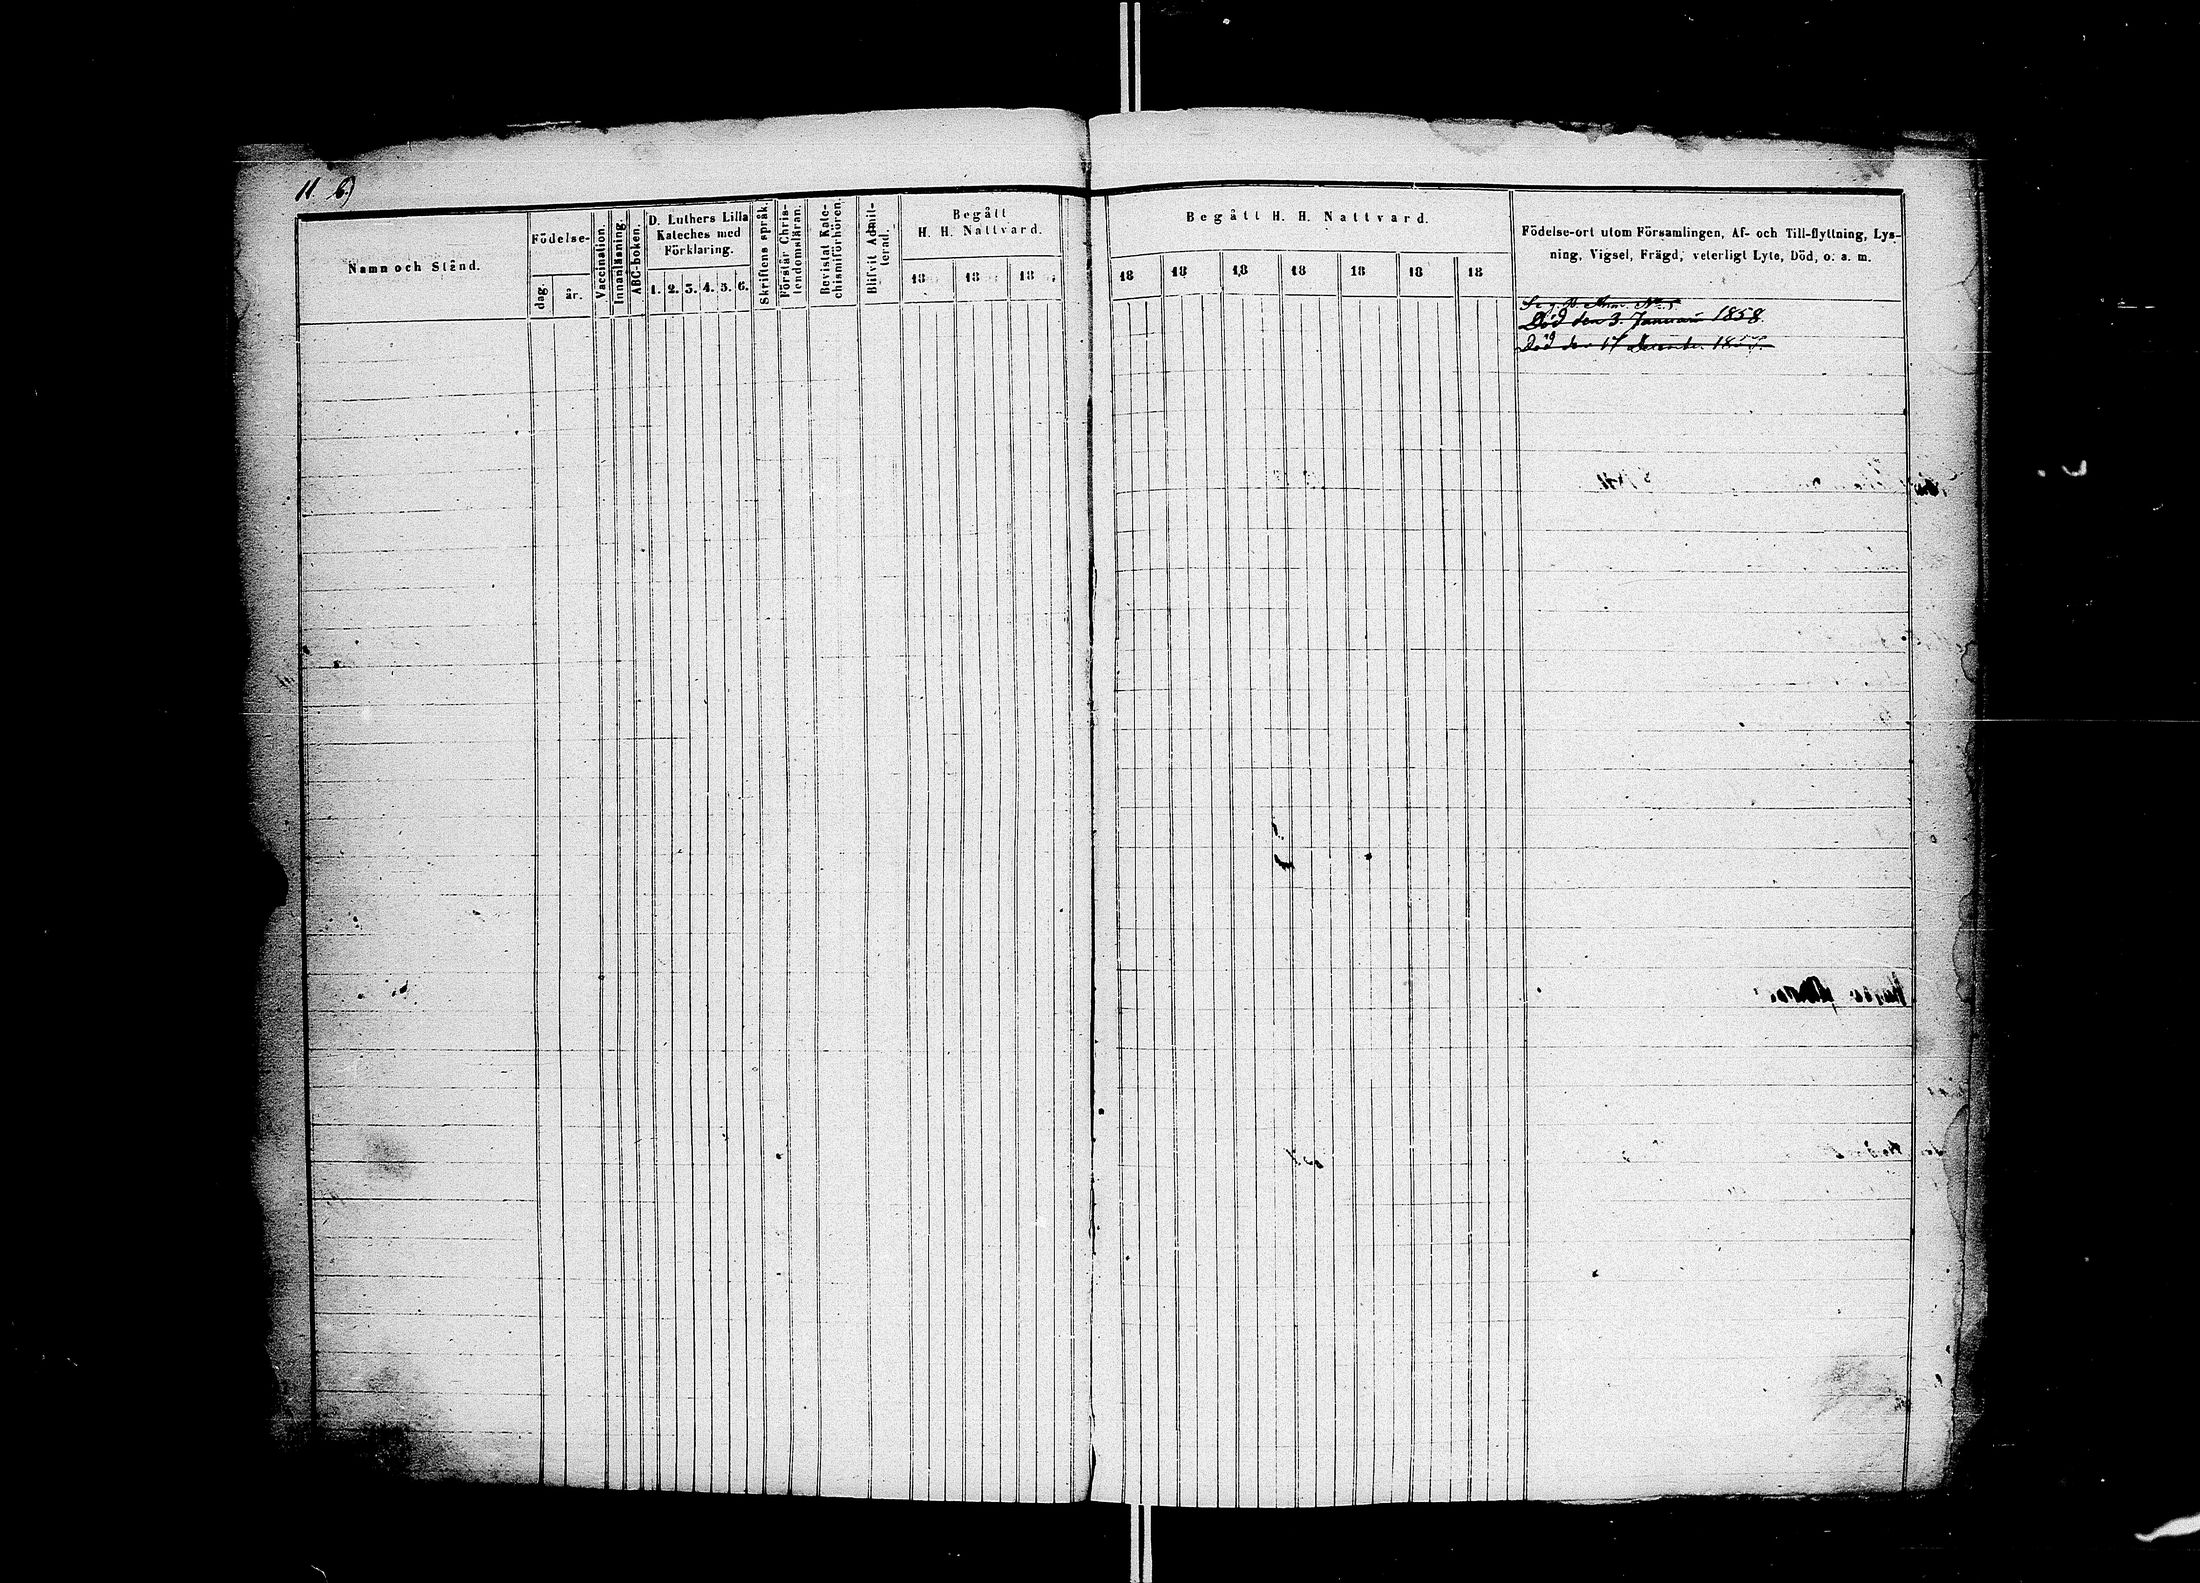 11. 6)
Namn och Stånd.
Födelse-
dag.
år.
Vaccination.
Innanläsning.
ABC-boken.
D. Luthers Lilla
Kateches med
Förklaring.
1. 2. 3. 4. 5. 6.
Skriftens språk.
Förstår Chris-
tendomsläran.
Bevistat Kate-
chismiförhören.
Blifvit Admit-
terad.
Begått
H. H. Nattvard.
18 18 18
Begått H. H. Nattvard.
18 18 18 18 18 18 18
Födelse-ort utom Församlingen, Af- och Till-flyttning, Lys-
ning, Vigsel, Frägd, veterligt Lyte, Död, o. a. m.
Död den 3. Januari 1858.
Död den 17 December 1857.